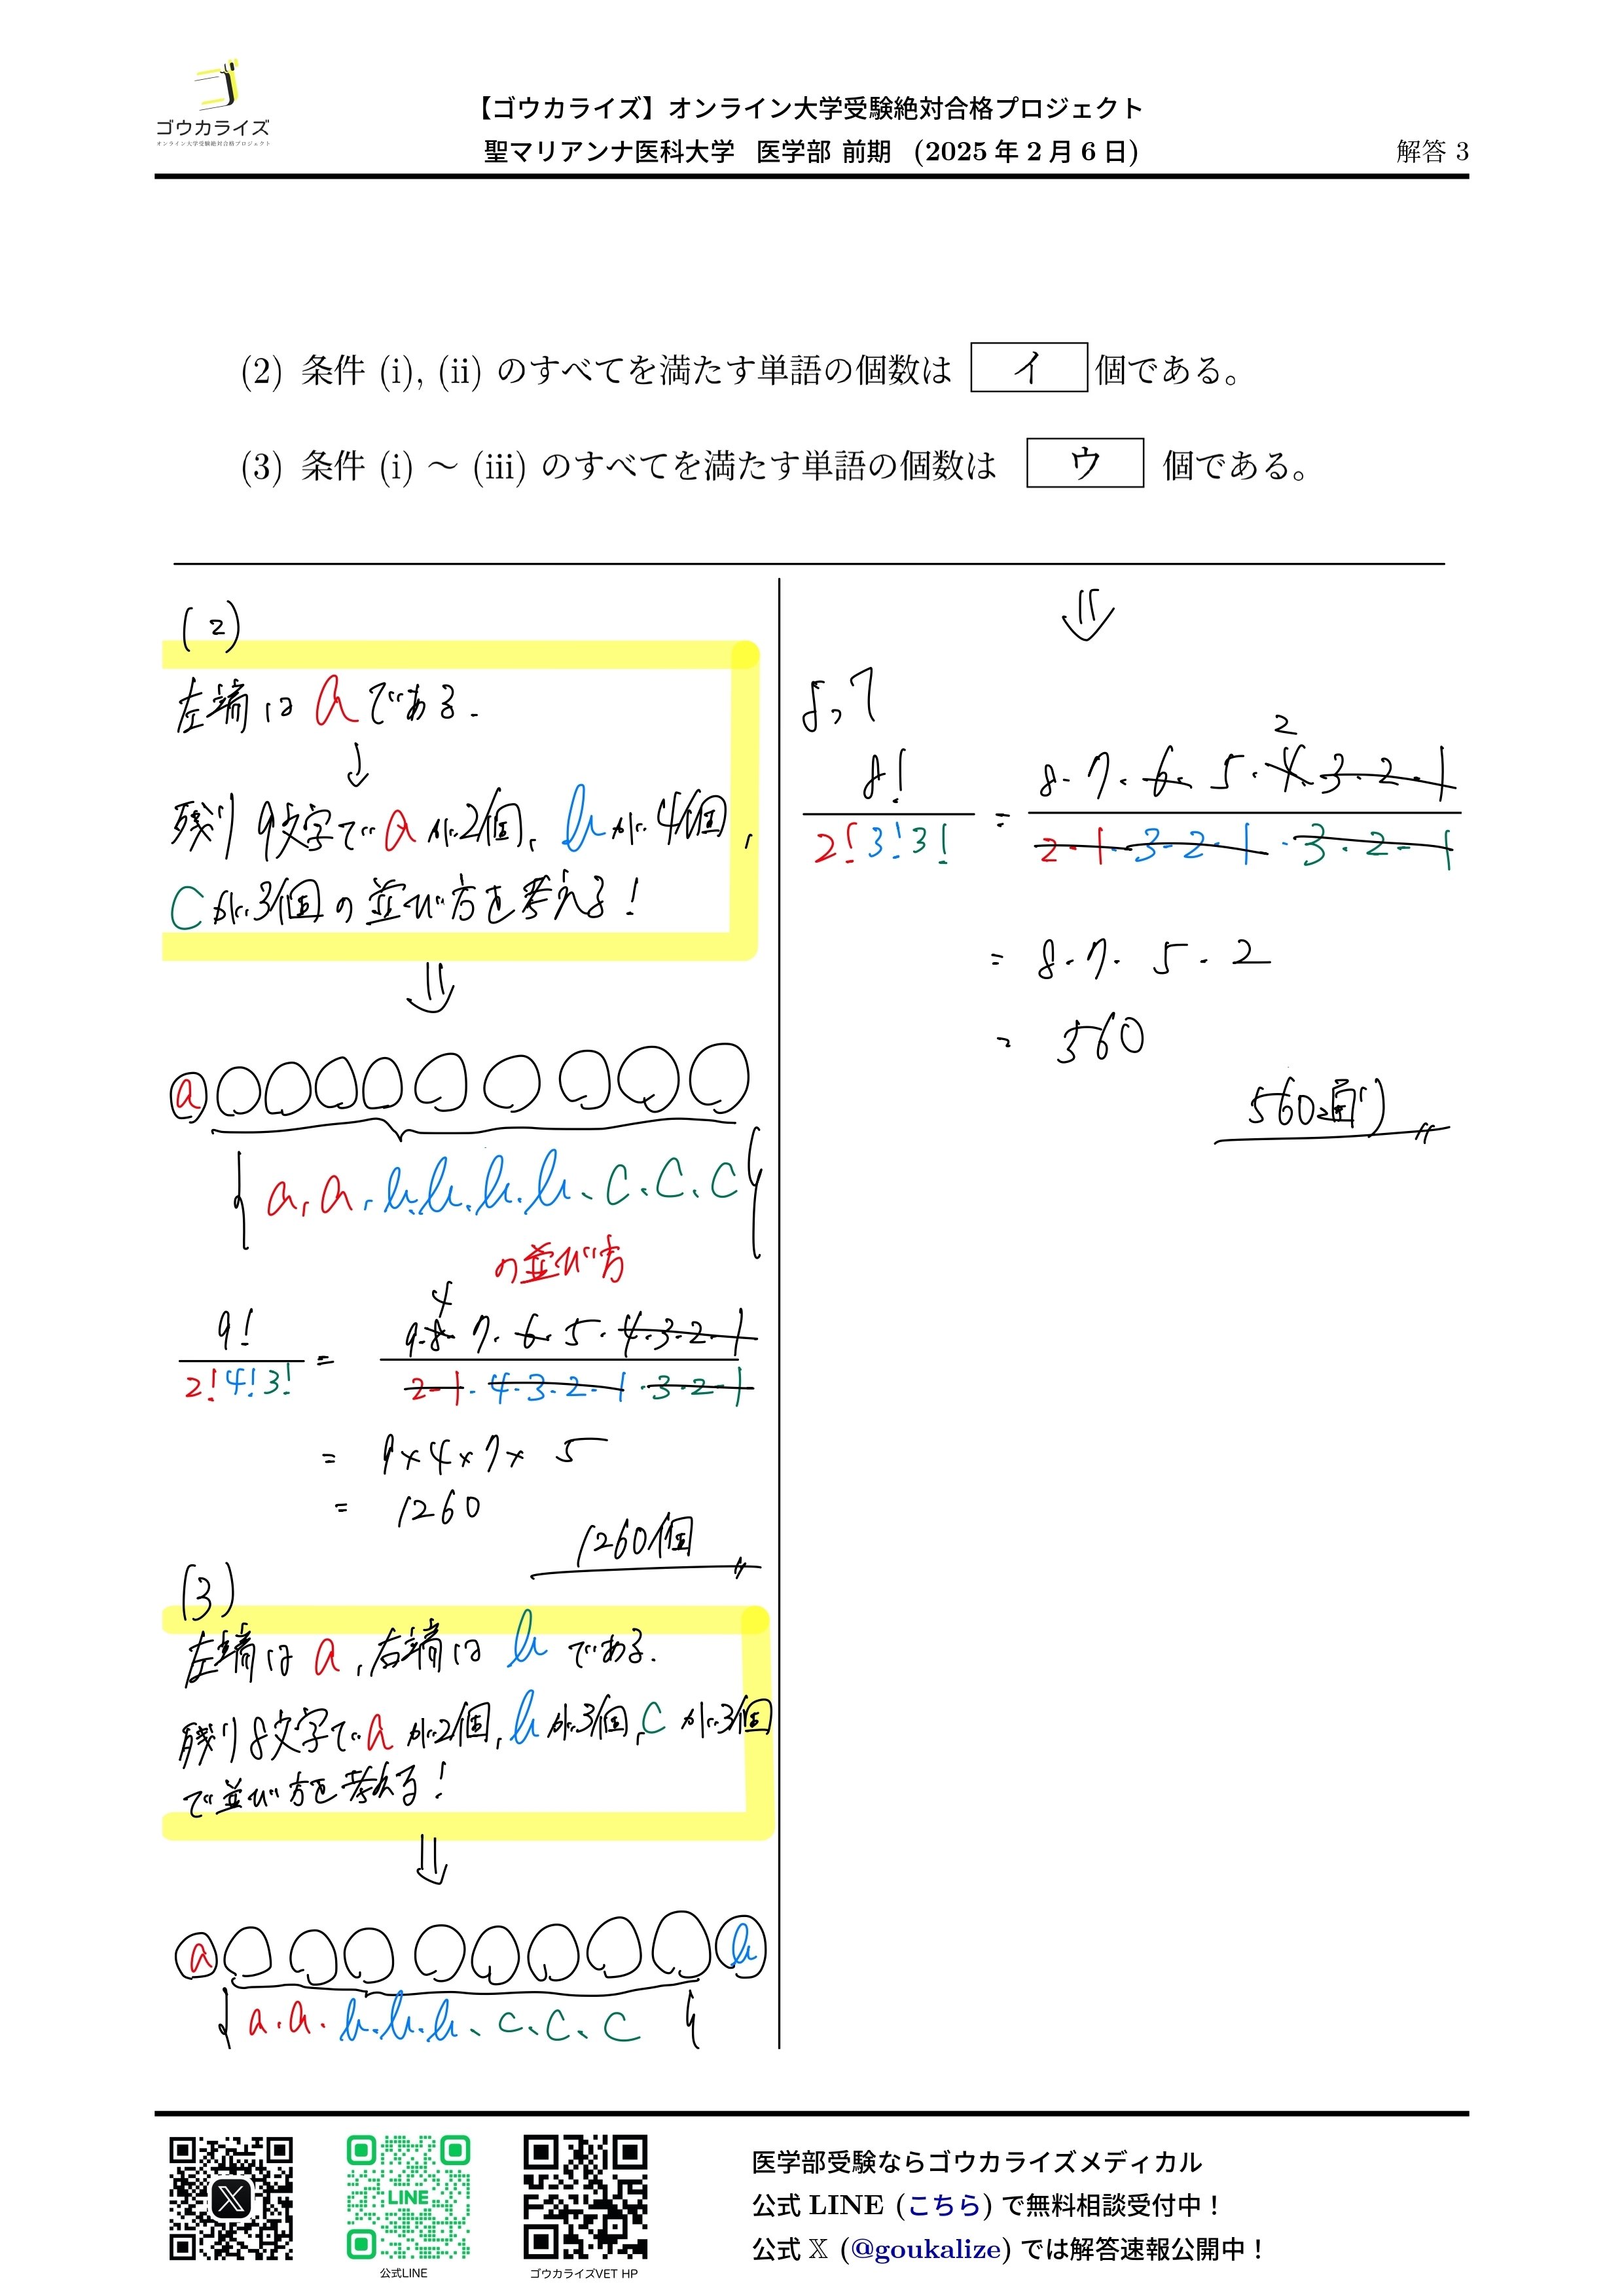 ゴウカライズ
オンライン大学受験絶対合格プロジェクト
【ゴウカライズ】オンライン大学受験絶対合格プロジェクト
聖マリアンナ医科大学 医学部 前期 (2025 年 2 月 6 日)
解答 3
(2) 条件 (i), (ii) のすべてを満たす単語の個数は イ 個である。
(3) 条件 (i) ～ (iii) のすべてを満たす単語の個数は ウ 個である。
(2)
左端は a である.
↓
残り 9文字で a が 2個, b が 4個,
c が 3個 の 並び方を考える!
⇓
a ○○○○○○○○○
{a, a, b, b, b, b, c, c, c}
の並び方
9!/2!4!3! = 9·8·7·6·5·4·3·2·1/2·1·4·3·2·1·3·2·1
4
= 9×4×7×5
= 1260
1260個
(3)
左端は a, 右端は b である.
残り 8文字で a が 2個, b が 3個, c が 3個
で並び方を考える!
⇓
a ○○○○○○○○ b
{a, a, b, b, b, c, c, c}
⇓
よって
8!/2!3!3! = 8·7·6·5·4·3·2·1/2·1·3·2·1·3·2·1
2
= 8·7·5·2
= 560
560通り
LINE
公式LINE
ゴウカライズVET HP
医学部受験ならゴウカライズメディカル
公式 LINE (こちら) で無料相談受付中！
公式 𝕏 (@goukalize) では解答速報公開中！